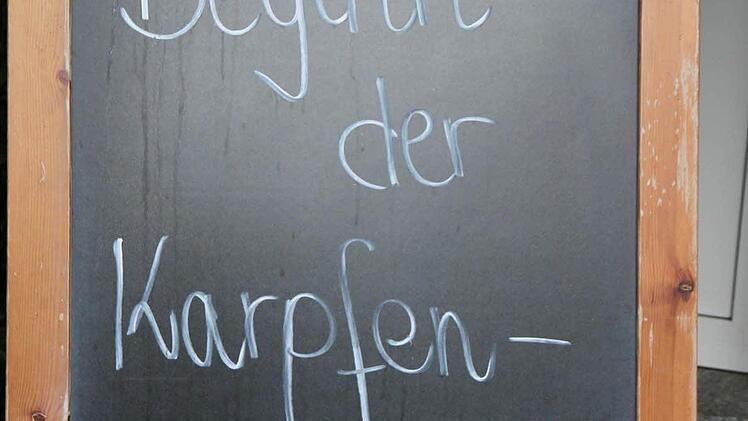 Beginn
der
Karpfen-